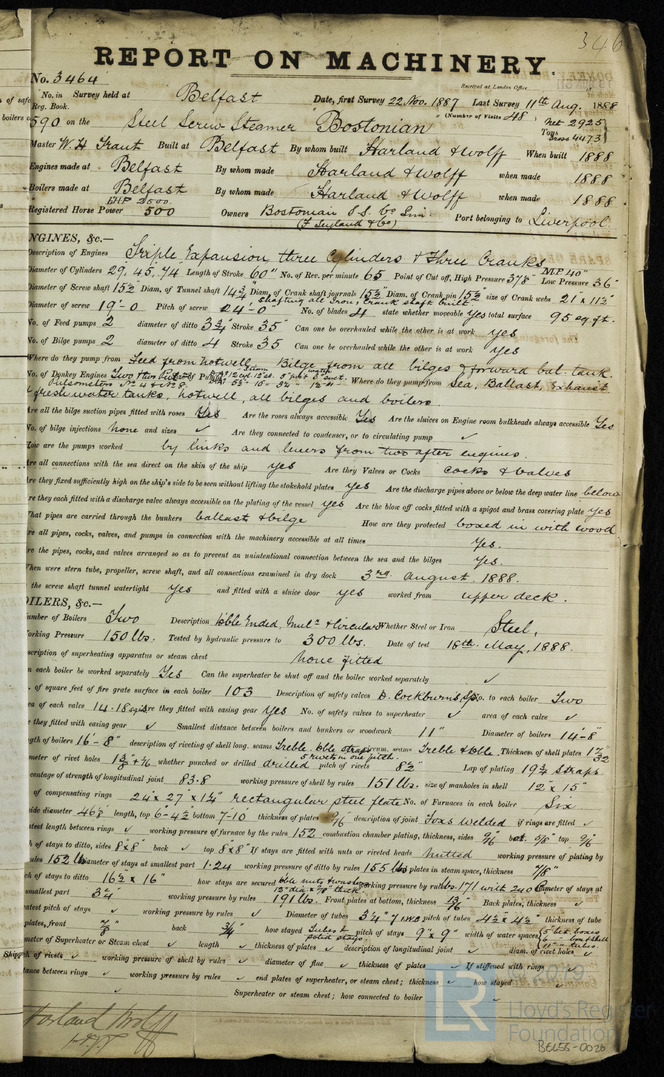 346
REPORT ON MACHINERY.
No. 3464
Received at London Office
No. in Survey held at Belfast Date, first Survey 22 Nov. 1887 Last Survey 11th Aug. 1888
Reg. Book. (Number of Visits 48)
590 on the Steel Screw Steamer Bostonian Tons Net 2925 Gross 4473
Master W. H. Trant Built at Belfast By whom built Harland & Wolff When built 1888
Engines made at Belfast By whom made Harland & Wolff when made 1888
Boilers made at Belfast By whom made Harland & Wolff when made 1888
Registered Horse Power 500 Owners Bostonian S.S. Co Lim Port belonging to Liverpool
(F. Leyland & Co)
NGINES, &c.—
Description of Engines Triple Expansion three Cylinders & Three Cranks
Diameter of Cylinders 29. 45. 74 Length of Stroke 60" No. of Rev. per minute 65 Point of Cut off, High Pressure 37⅞" M.P 40" Low Pressure 36"
Diameter of Screw shaft 15½ Diam. of Tunnel shaft 14¾ Diam. of Crank shaft journals 15½" Diam. of Crank pin 15½" size of Crank webs 21 × 11½"
shafting all Iron, Crank shaft built
Diameter of screw 19'-0 Pitch of screw 24'-0" No. of blades 4 state whether moveable Yes total surface 95 sq ft.
No. of Feed pumps 2 diameter of ditto 3¾ Stroke 35" Can one be overhauled while the other is at work yes
No. of Bilge pumps 2 diameter of ditto 4 Stroke 35" Can one be overhauled while the other is at work yes
Where do they pump from Feed from hotwell, Bilge from all bilges & forward bal. tank.
No. of Donkey Engines Two Where do they pump from Sea, Ballast, Exhaust
& fresh water tanks, hotwell, all bilges and boilers
Are all the bilge suction pipes fitted with roses Yes Are the roses always accessible Yes Are the sluices on Engine room bulkheads always accessible Yes
No. of bilge injections none and sizes ✓ Are they connected to condenser, or to circulating pump ✓
How are the pumps worked by links and levers from two after engines.
Are all connections with the sea direct on the skin of the ship yes Are they Valves or Cocks cocks & valves
Are they fixed sufficiently high on the ship's side to be seen without lifting the stokehold plates yes Are the discharge pipes above or below the deep water line below
are they each fitted with a discharge valve always accessible on the plating of the vessel yes Are the blow off cocks fitted with a spigot and brass covering plate yes
What pipes are carried through the bunkers ballast & bilge How are they protected boxed in with wood
Are all pipes, cocks, valves, and pumps in connection with the machinery accessible at all times Yes.
Are the pipes, cocks, and valves arranged so as to prevent an unintentional connection between the sea and the bilges Yes.
When were stern tube, propeller, screw shaft, and all connections examined in dry dock 3rd August, 1888.
the screw shaft tunnel watertight Yes and fitted with a sluice door yes worked from upper deck.
OILERS, &c.—
umber of Boilers Two Description Dble Ended, Mul. & Circular Whether Steel or Iron Steel,
orking Pressure 150 lbs. Tested by hydraulic pressure to 300 lbs. Date of test 18th May, 1888.
scription of superheating apparatus or steam chest none fitted
n each boiler be worked separately Yes Can the superheater be shut off and the boiler worked separately ✓
. of square feet of fire grate surface in each boiler 103 Description of safety valves D. Cockburns Sp No. to each boiler Two
ea of each valve 14.18 Are they fitted with easing gear Yes No. of safety valves to superheater ✓ area of each valve ✓
e they fitted with easing gear ✓ Smallest distance between boilers and bunkers or woodwork 11" Diameter of boilers 14-8"
ngth of boilers 16'-8" description of riveting of shell long. seams Treble, dble straps circum. seams Treble & Dble Thickness of shell plates 1 7/32
5 rivets in one pitch
meter of rivet holes whether punched or drilled drilled pitch of rivets 8½" Lap of plating 19¾ Straps
centage of strength of longitudinal joint 83.8 working pressure of shell by rules 151 lbs. size of manholes in shell 12" × 15"
of compensating rings 24 × 27 × 1¼ rectangular steel plate No. of Furnaces in each boiler Six
side diameter 46⅞ length, top 6-4½ bottom 7-10 thickness of plates 9/16 description of joint Foxs welded if rings are fitted ✓
atest length between rings ✓ working pressure of furnace by the rules 152 combustion chamber plating, thickness, sides 9/16 back 9/16 top 9/16
h of stays to ditto, sides 8×8 back ✓ top 8×8 If stays are fitted with nuts or riveted heads nutted working pressure of plating by
rules 152 lbs diameter of stays at smallest part 1.24 working pressure of ditto by rules 155 lbs plates in steam space, thickness 7/8"
ch of stays to ditto 16½ × 16" how stays are secured dble nuts & washers working pressure by rules 171 diameter of stays at
smallest part 3¼" working pressure by rules 191 lbs. Front plates at bottom, thickness 13/16 Back plates, thickness ✓
eatest pitch of stays ✓ working pressure by rules ✓ Diameter of tubes 3¼ pitch of tubes 4½ × 4½ thickness of tube
plates, front 7/8 back 3/4 how stayed Tubes & solid stays pitch of stays 9" × 9" width of water spaces
meter of Superheater or Steam chest ✓ length ✓ thickness of plates ✓ description of longitudinal joint ✓ diam. of rivet holes ✓
h of rivets ✓ working pressure of shell by rules ✓ diameter of flue ✓ thickness of plates ✓ If stiffened with rings ✓
tance between rings ✓ working pressure by rules ✓ end plates of superheater, or steam chest; thickness ✓ how stayed ✓
Superheater or steam chest; how connected to boiler ✓
Harland Wolff
LR
2019
Lloyd's Register
Foundation
BEL55-0026